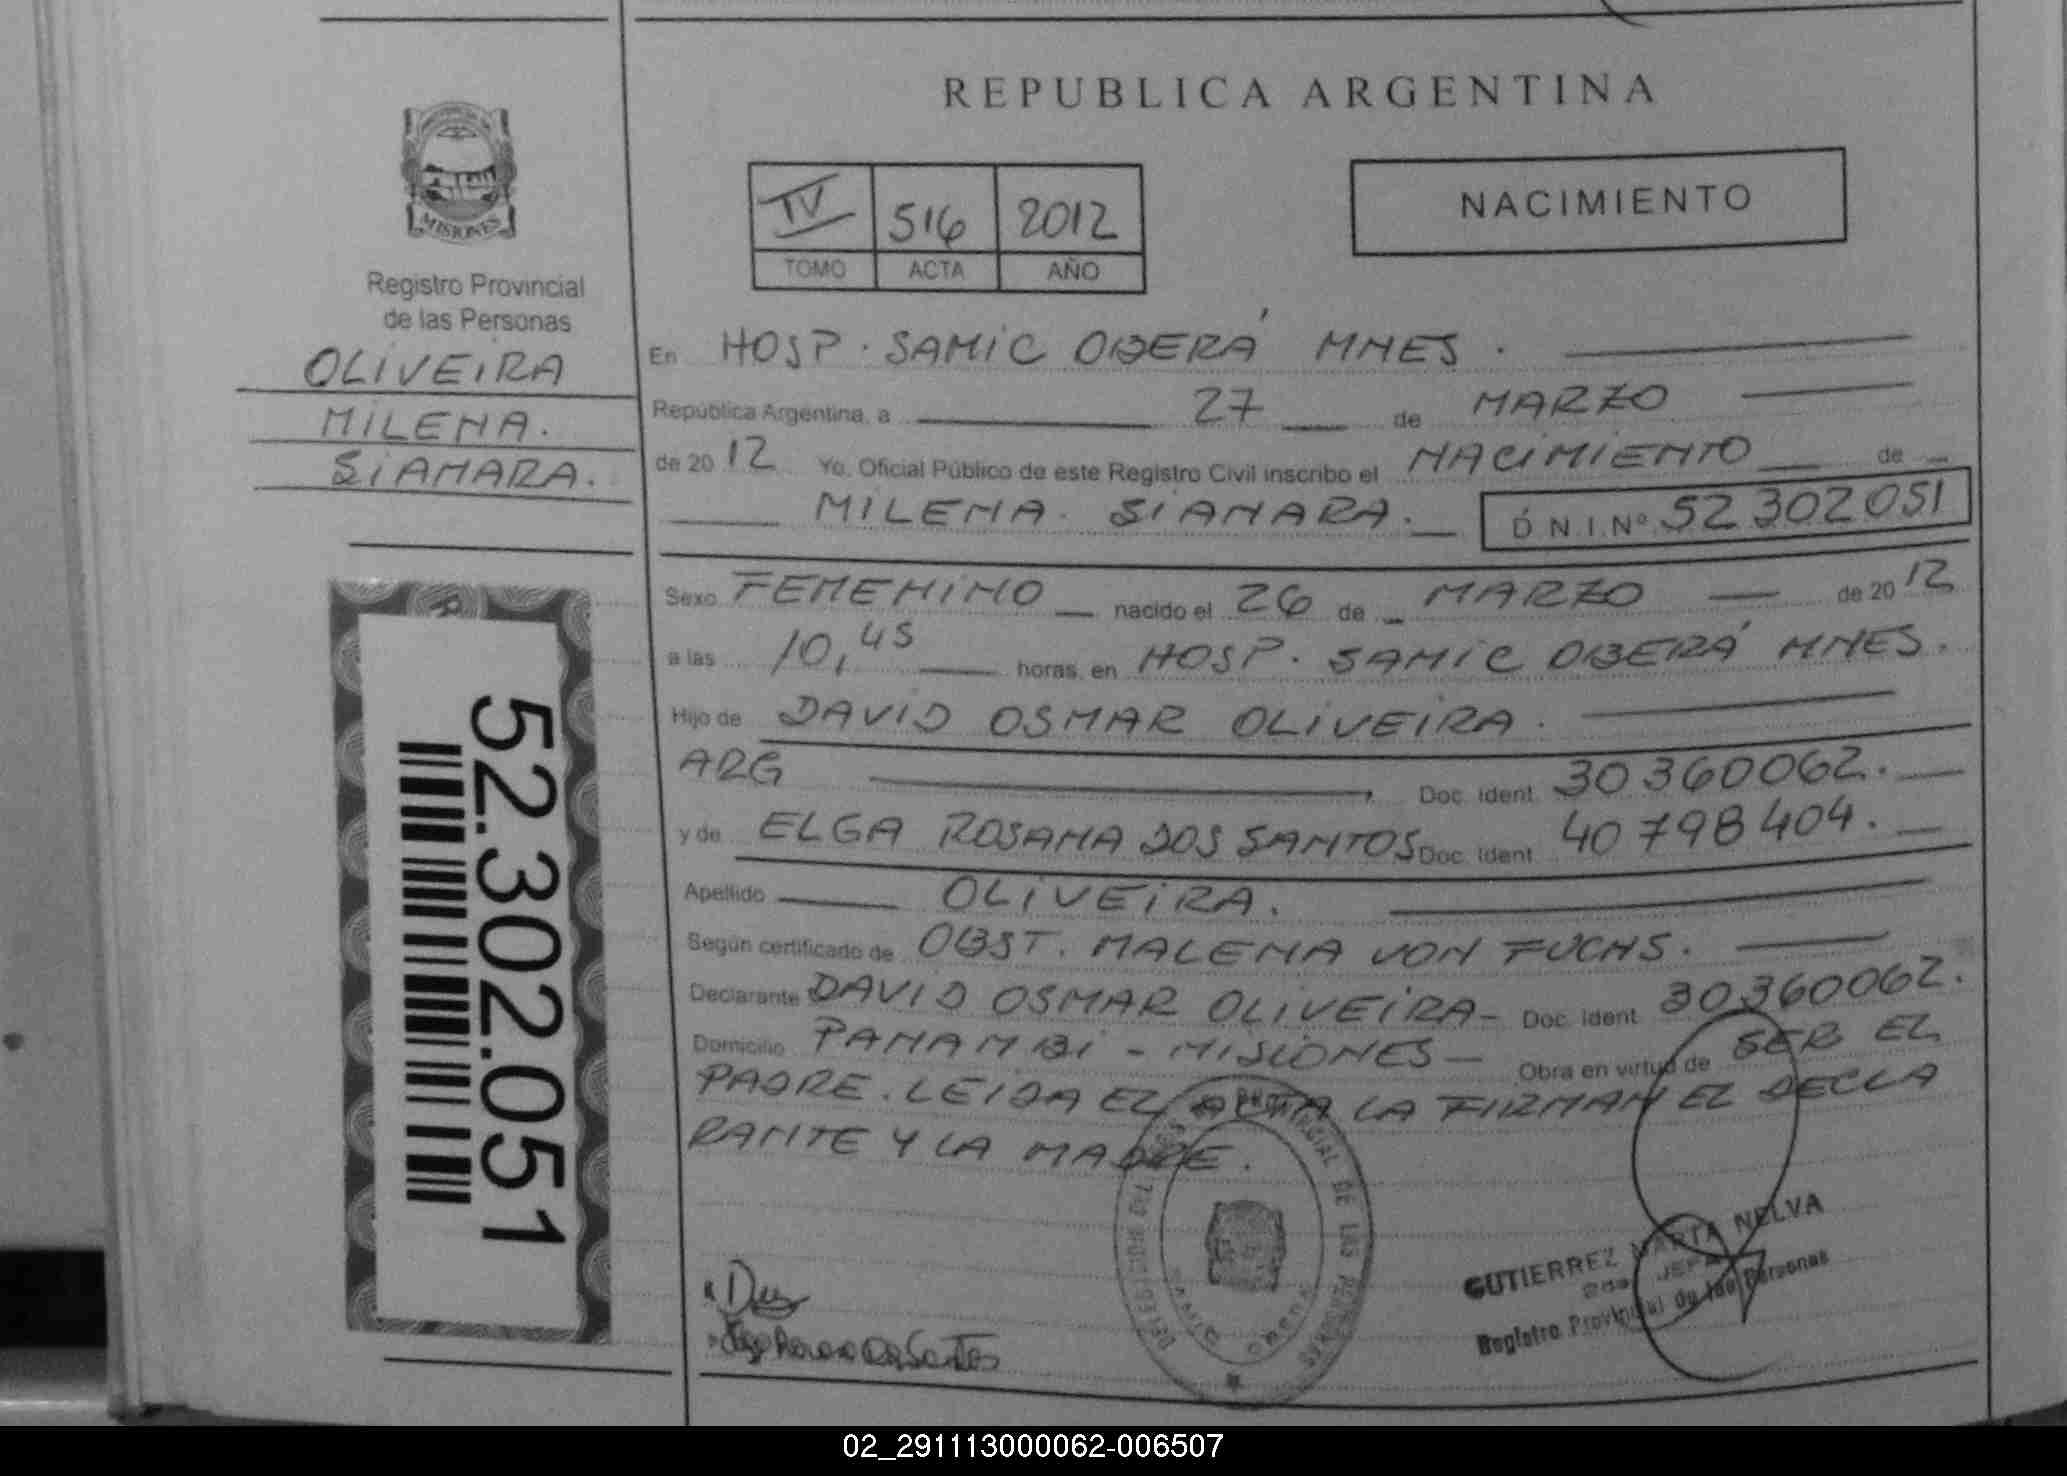 REPUBLICA ARGENTINA
MISIONES
Registro Provincial
de las Personas
OLIVEIRA
MILENA.
SIAMARA.
52.302.051
IV 516 2012
TOMO ACTA AÑO
NACIMIENTO
En HOSP. SAMIC OBERÁ MNES.
República Argentina, a 27 de MARZO
de 2012 Yo, Oficial Público de este Registro Civil inscribo el NACIMIENTO de
MILENA. SIAMARA. D.N.I.Nº 52302051
Sexo FEMENINO nacido el 26 de MARZO de 2012
a las 10,45 horas, en HOSP. SAMIC OBERÁ MNES.
Hijo de DAVID OSMAR OLIVEIRA.
ARG Doc. Ident. 30360062.
y de ELGA ROSANA DOS SANTOS Doc. Ident. 40798404.
Apellido OLIVEIRA.
Según certificado de OBST. MALENA VON FUCHS.
Declarante DAVID OSMAR OLIVEIRA- Doc. Ident. 30360062.
Domicilio PANAMBI - MISIONES - Obra en virtud de SER EL
PADRE. LEIDA EL ACTA LA FIRMAN EL DECLA
RANTE Y LA MADRE.
GUTIERREZ MARTA NELVA
2da JEFA
Registro Provincial de las Personas
02_291113000062-006507